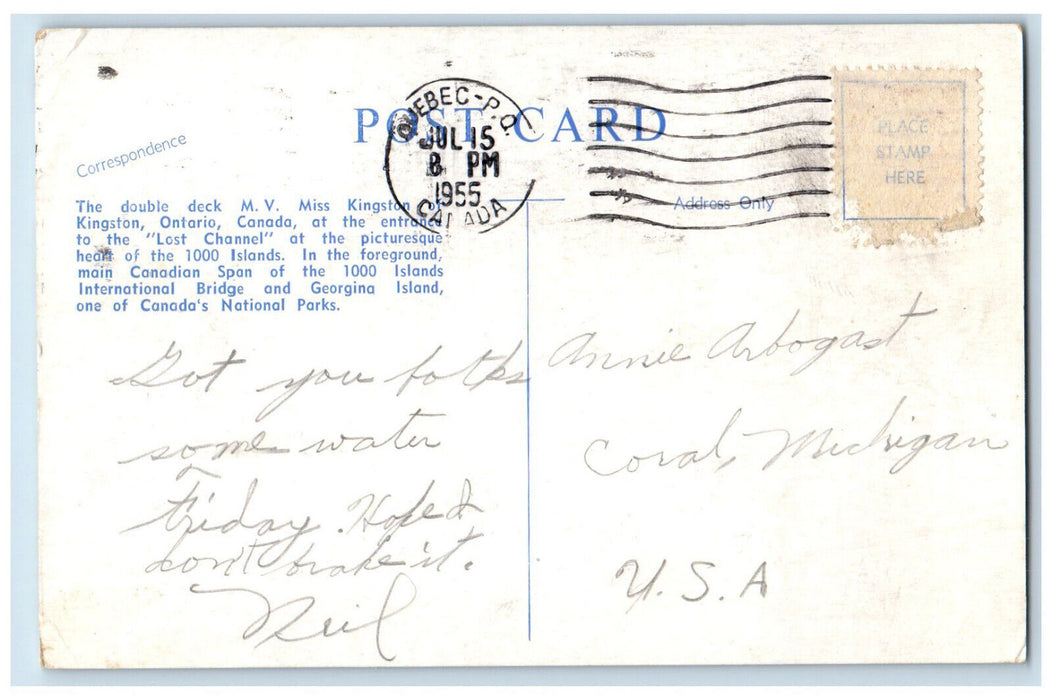 POST CARD
QUEBEC-P.Q.
JUL 15
8 PM
1955
CANADA
PLACE
STAMP
HERE
Correspondence
Address Only
The double deck M. V. Miss Kingston of
Kingston, Ontario, Canada, at the entrance
to the "Lost Channel" at the picturesque
heart of the 1000 Islands. In the foreground,
main Canadian Span of the 1000 Islands
International Bridge and Georgina Island,
one of Canada's National Parks.
Got you folks
some water
Friday. Hope I
don't brake it.
Neil
Annie Arbogast
Coral, Michigan
U.S.A